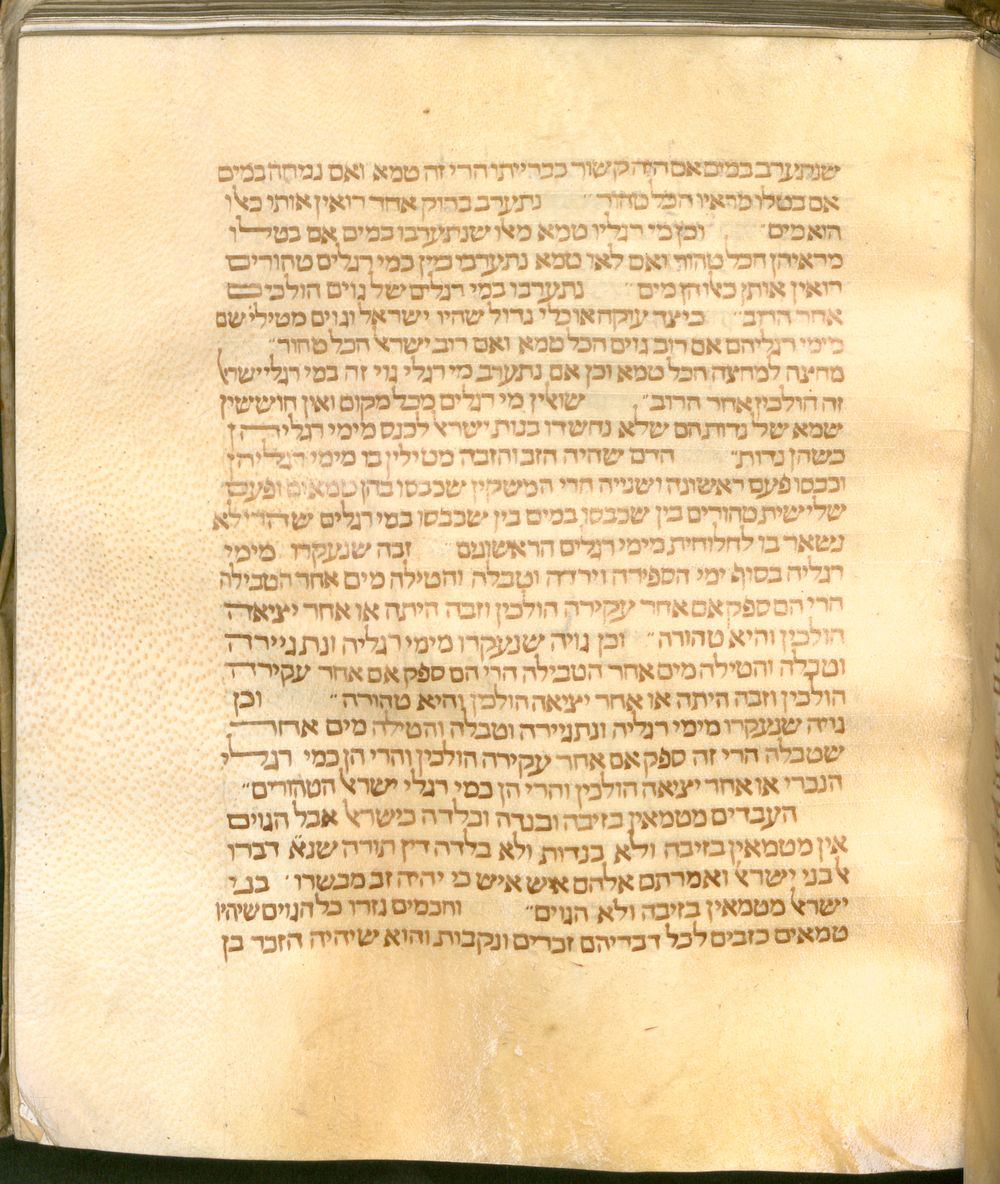 שנתערב במים אם היה קשור בברייתו הרי זה טמא ואם נמחה במים
אם בטלו מראיו הכל טהור״ נתערב ברוק אחר רואין אותו כאלו
הוא מים״ וכן מי רגליו טמא מאו שנתערבו במים אם בטילו
מראיהן הכל טהור ואם לאו טמא נתערבו ביין במי רגלים טהורים
רואין אותן כאלו הן מים״ נתערבו במי רגלים של גוים הולכים
אחר הרוב״ כיצד עוקה או כלי גדול שהיו ישראל וגוים מטילי שם
מימי רגליהם אם רוב גוים הכל טמא ואם רוב ישראל הכל טהור״
מחצה למחצה הכל טמא וכן אם נתערב מי רגלי גוי זה במי רגלי ישראל
זה הולכין אחר הרוב״ שואלין מי רגלים מכל מקום ואין חוששין
שמא של נדות הם שלא נחשדו בנות ישראל לכנס מימי רגליהן
כשהן נדות״ הרס שהיה הזב והזבה מטילין בו מימי רגליהן
וכבסו פעם ראשונה ושנייה הרי המשקין שכבסו בהן טמאים ופעם
שלישית טהורים בין שכבסו במים בין שכבסו במי רגלים שהרי לא
נשאר בו לחלוחית מימי רגלים הראשונים זבה שנעקרו מימי
רגליה בסוף ימי הספירה וירדה וטבלה והטילה מים אחר הטבילה
הרי הם ספק אם אחר עקירה הולכין וזבה היתה או אחר יציאה
הולכין והיא טהורה״ וכן גויה שנעקרו מימי רגליה ונתגיירה
וטבלה והטילה מים אחר הטבילה הרי הם ספק אם אחר עקירה
הולכין וזבה היתה או אחר יציאה הולכין והיא טהורה״ וכן
גויה שנעקרו מימי רגליה ונתגיירה וטבלה והטילה מים אחר
שטבלה הרי זה ספק אם אחר עקירה הולכין והרי הן כמי רגלי
הנכרי או אחר יציאה הולכין והרי הן כמי רגלי ישראל הטהורים״
העבדים מטמאין בזיבה ובנדה ובלדה כישראל אבל הגוים
אין מטמאין בזיבה ולא בנדות ולא בלדה דין תורה שנא׳ דברו
אל בני ישראל ואמרתם אלהם איש איש כי יהיה זב מבשרו׳ בני
ישראל מטמאין בזיבה ולא הגוים״ וחכמים גזרו כל הגוים שיהיו
טמאים כזבים לכל דבריהם זכרים ונקבות והוא שיהיה הזכר בן